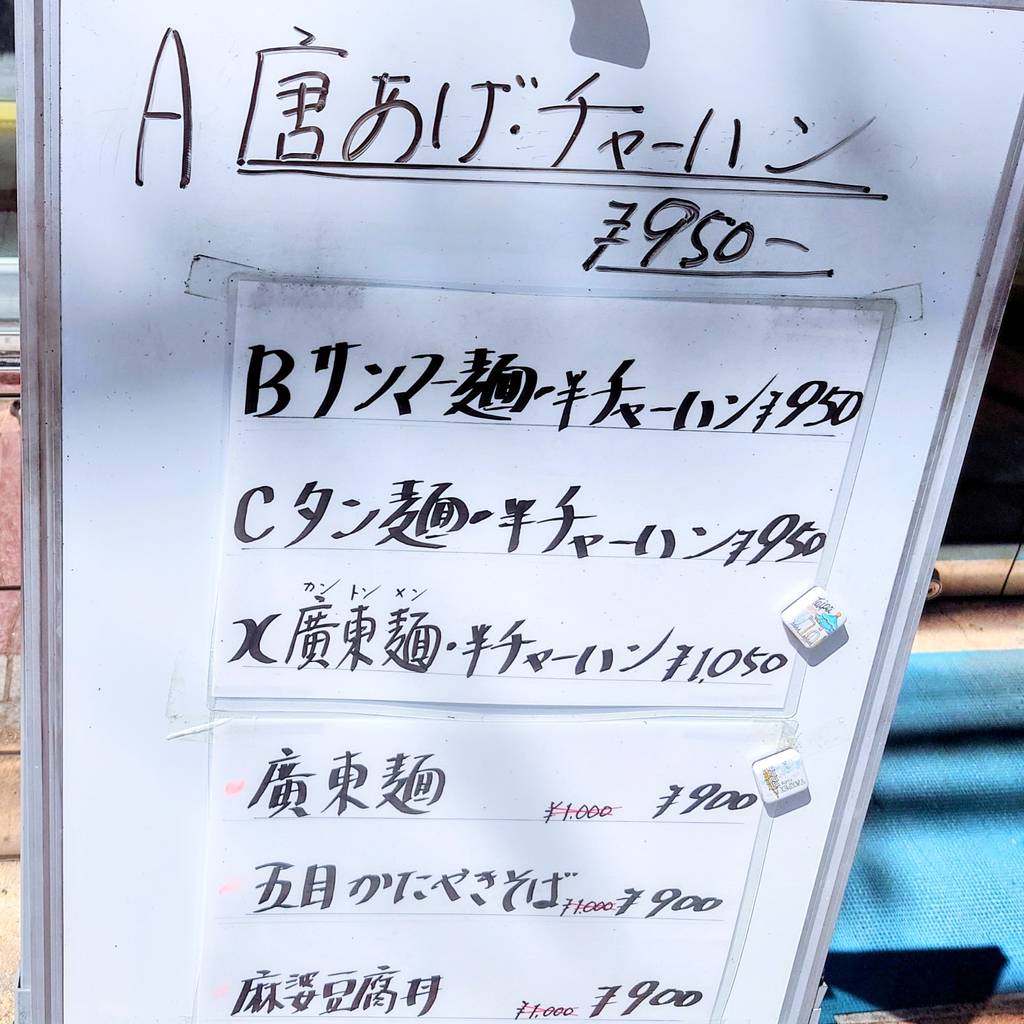 A 唐あげ・チャーハン
¥950-
B サンマー麺・半チャーハン ¥950
C タン麺・半チャーハン ¥950
カントンメン
X 廣東麺・半チャーハン ¥1,050
廣東麺 ¥1.000 ¥900
五目かたやきそば ¥1.000 ¥900
麻婆豆腐丼 ¥1.000 ¥900